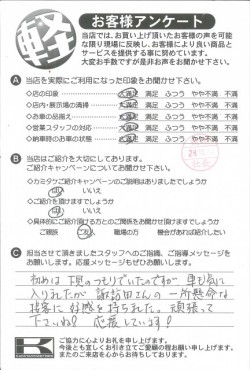 軽
お客様アンケート
当店では、お買い上げ頂いたお客様の声を可能
な限り現場に反映し、お客様により良い商品と
サービスを提供する事に努めています。
大変お手数ですが是非お声をお聞かせ下さい。
A 当店を実際にご利用になった印象をお聞かせ下さい。
◇店の印象 大満足 満足 ふつう やや不満 不満
◇店内・展示場の清掃 大満足 満足 ふつう やや不満 不満
◇お車の品揃え 大満足 満足 ふつう やや不満 不満
◇営業スタッフの対応 大満足 満足 ふつう やや不満 不満
◇納車時のお車の状態 大満足 満足 ふつう やや不満 不満
B 当店はご紹介を大切にしております。
ご紹介キャンペーンについてお聞かせ下さい。
◇カミタケご紹介キャンペーンのご説明はありましたでしょうか
はい いいえ
◇ご紹介を頂けますでしょうか
はい いいえ
◇具体的にご紹介頂ける方とのご関係をお聞かせ頂けますでしょうか
ご親戚 ご友人 職場の方 機会があれば紹介したい
C 担当させて頂きましたスタッフへのご指摘、ご指導メッセージを
お願いします。応援メッセージもぜひお願いします。
初めは下見のつもりでいたのですが 車も気に
入りましたが 諏訪田さんの一所懸命な
接客に好感を持ちました。頑張って
下さいね! 応援しています!
K
ご協力に心よりお礼を申し上げます。
今後とも宜しくお引き立てご愛顧の程お願い申し上げます。
またのご来店を心からお待ちしております。